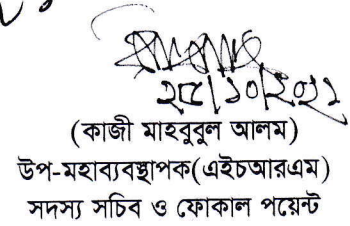 ২৫/১০/২০২১
(কাজী মাহবুবুল আলম)
উপ-মহাব্যবস্থাপক(এইচআরএম)
সদস্য সচিব ও ফোকাল পয়েন্ট